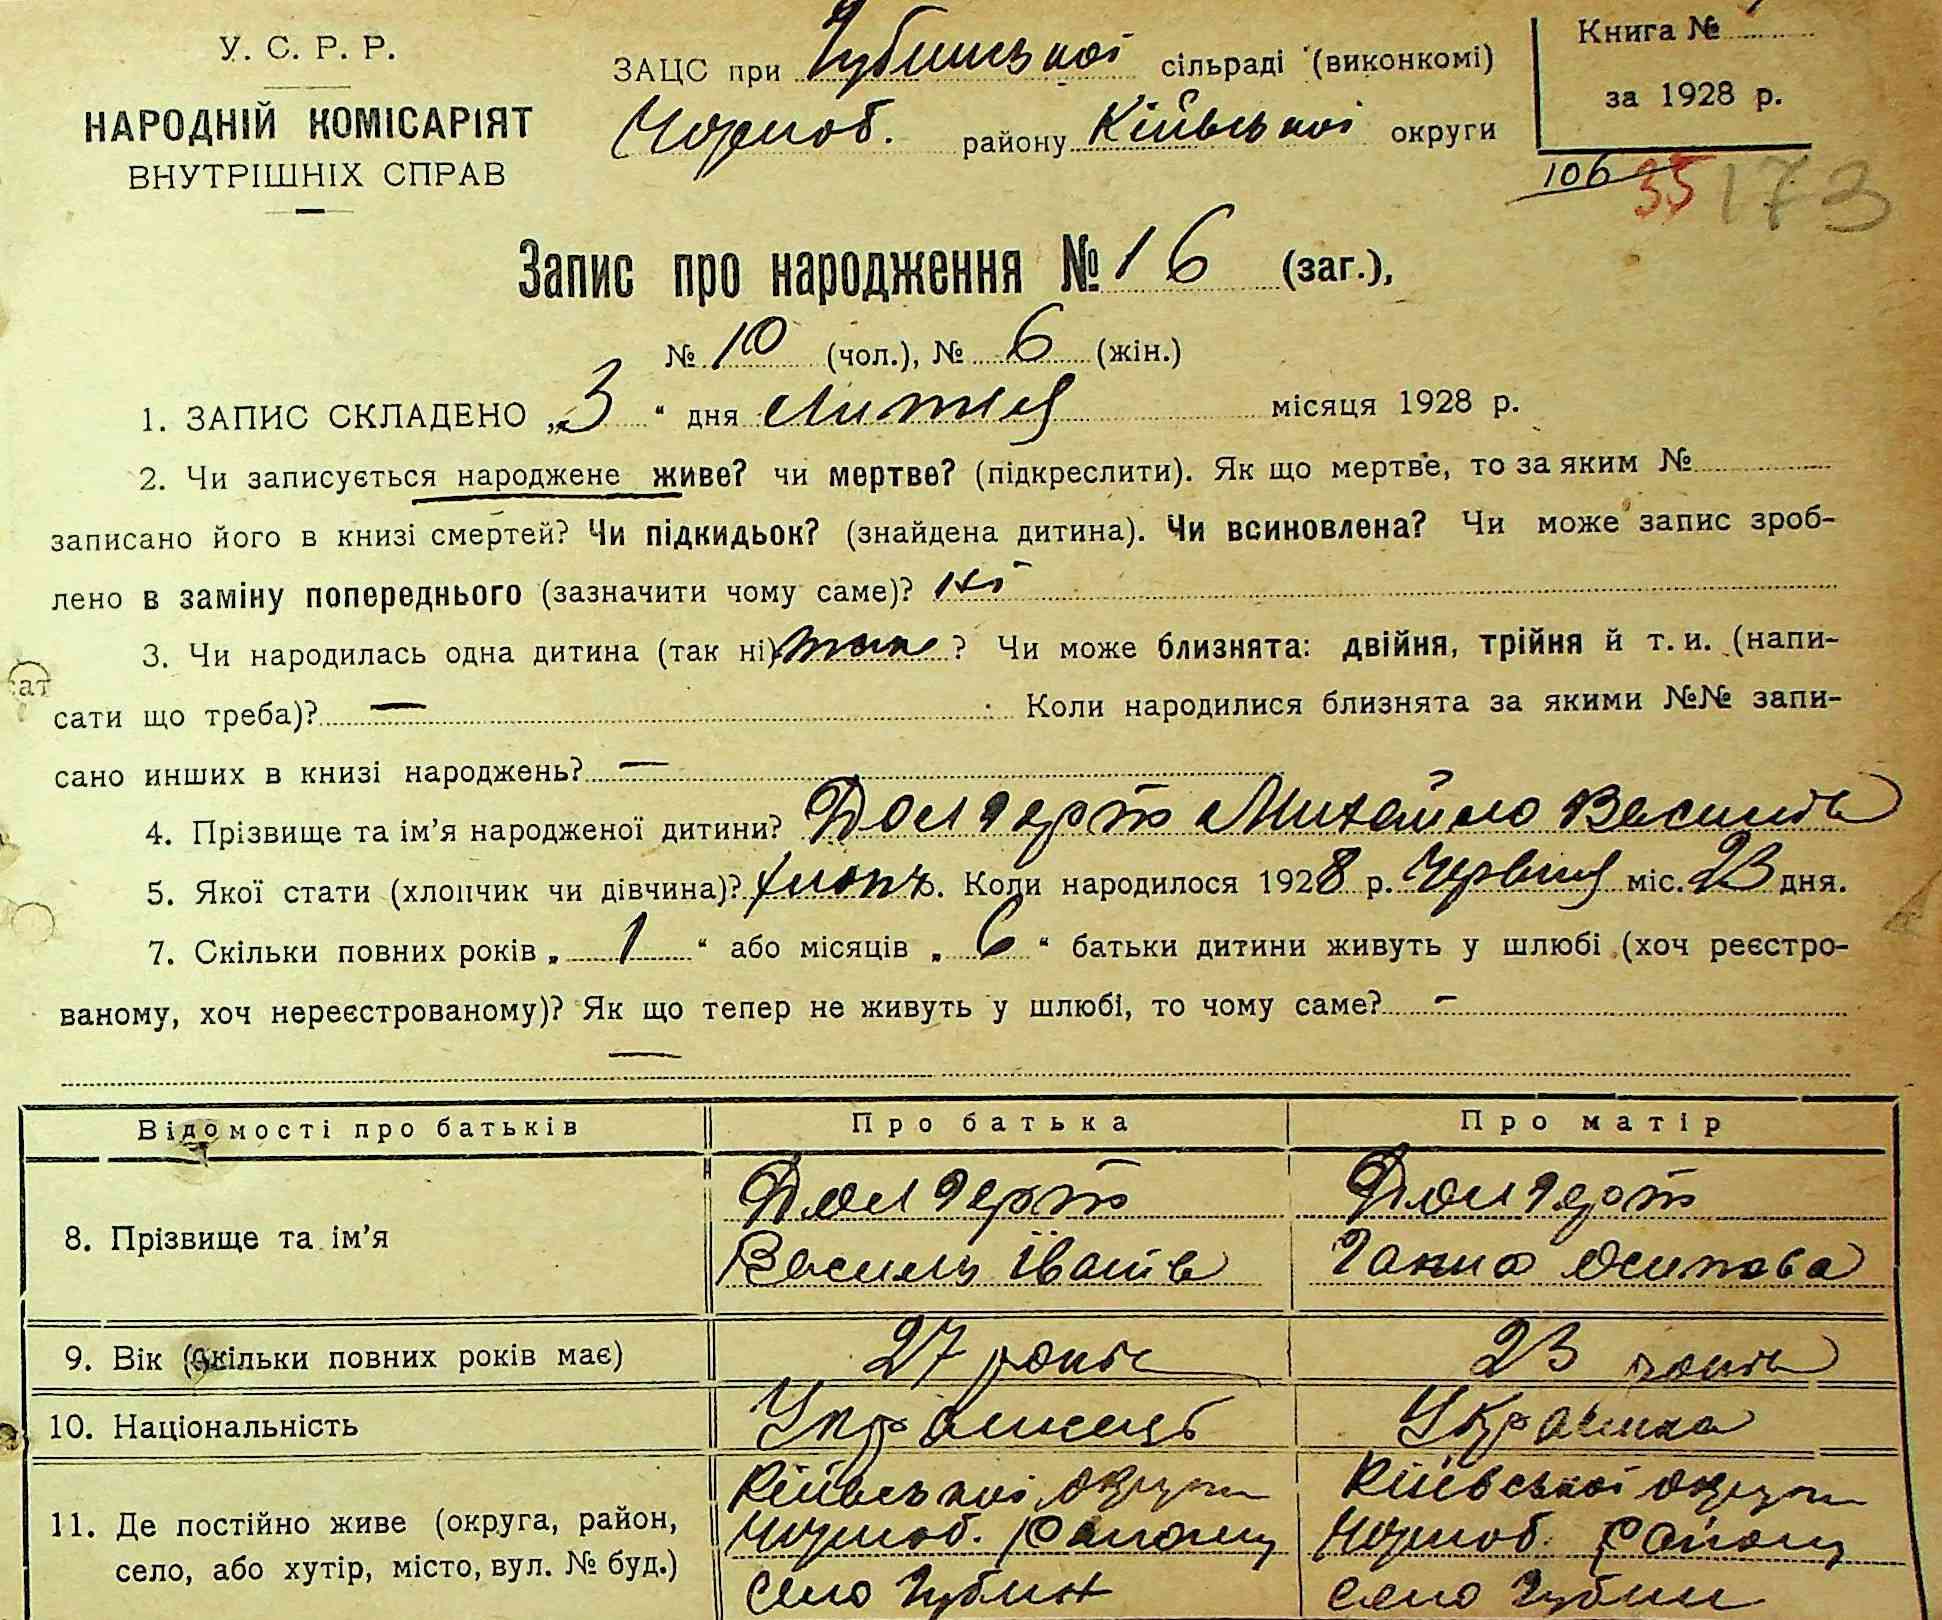 У. С. Р. Р.
НАРОДНІЙ КОМІСАРІЯТ
ВНУТРІШНІХ СПРАВ
ЗАЦС при Чубинської сільраді (виконкомі)
Чорноб. району Київської округи
Книга №
за 1928 р.
106 35 173
Запис про народження № 16 (заг.),
№ 10 (чол.), № 6 (жін.)
1. ЗАПИС СКЛАДЕНО „3“ дня Липня місяця 1928 р.
2. Чи записується народжене живе? чи мертве? (підкреслити). Як що мертве, то за яким №
записано його в книзі смертей? Чи підкидьок? (знайдена дитина). Чи всиновлена? Чи може запис зроб-
лено в заміну попереднього (зазначити чому саме)? ні
3. Чи народилась одна дитина (так ні) так? Чи може близнята: двійня, трійня й т. и. (напи-
сати що треба)? — Коли народилися близнята за якими №№ запи-
сано инших в книзі народжень? —
4. Прізвище та ім’я народженої дитини? Долгерт Михайло Василів
5. Якої стати (хлопчик чи дівчина)? хлопч. Коли народилося 1928 р. Червня міс. 23 дня.
7. Скільки повних років „1“ або місяців „6“ батьки дитини живуть у шлюбі (хоч реєстро-
ваному, хоч нереєстрованому)? Як що тепер не живуть у шлюбі, то чому саме? —
—
Відомості про батьків Про батька Про матір
8. Прізвище та ім’я Долгерт Долгерт
Василь Іванів Ганна Осипова
9. Вік (скільки повних років має) 27 років 23 років
10. Національність Українець Українка
11. Де постійно живе (округа, район, село, або хутір, місто, вул. № буд.) Київської округи Київської округи
Чорноб. району Чорноб. району
село Чубин село Чубин